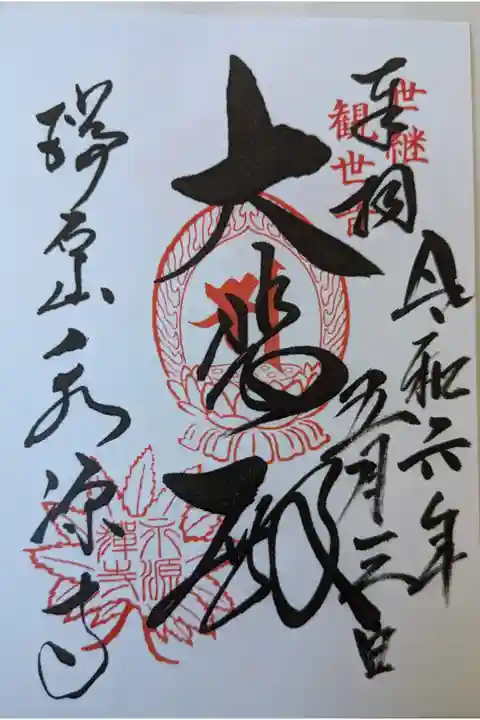 奉拝
世継
観世音
令和六年
五月三日
大悲殿
瑞石山永源寺
永源
禅寺